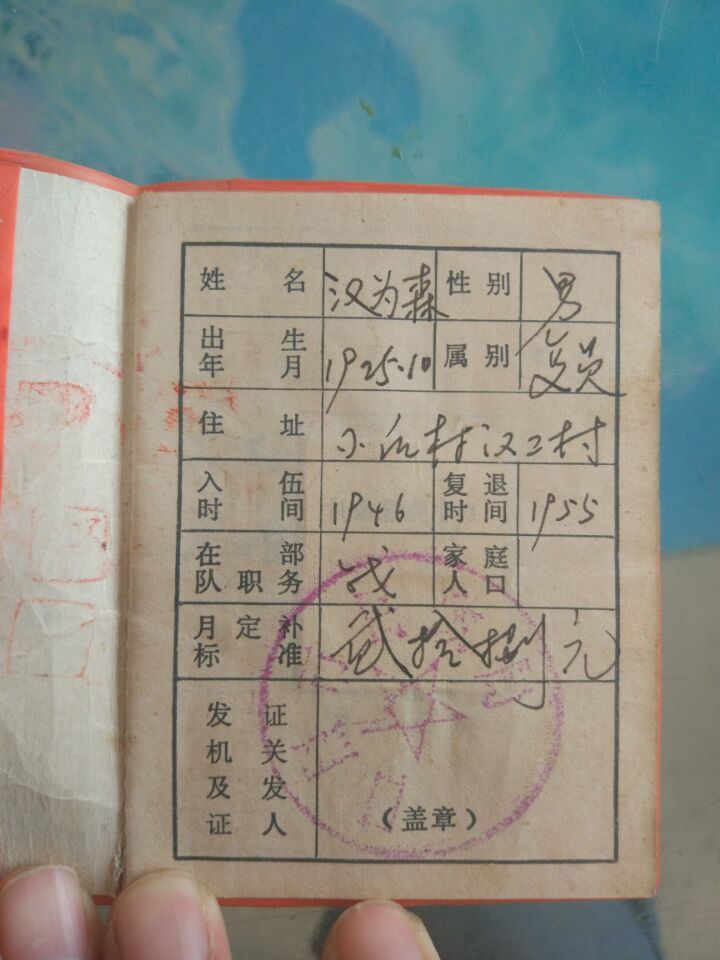 姓名 汉为森 性别 男
出生年月 1925.10 属别 党员
住址 村汉二村
入伍时间 1946 复退时间 1955
在部队职务 战 家庭人口
月定补标准 贰拾捌元
发证机关及发证人
（盖章）